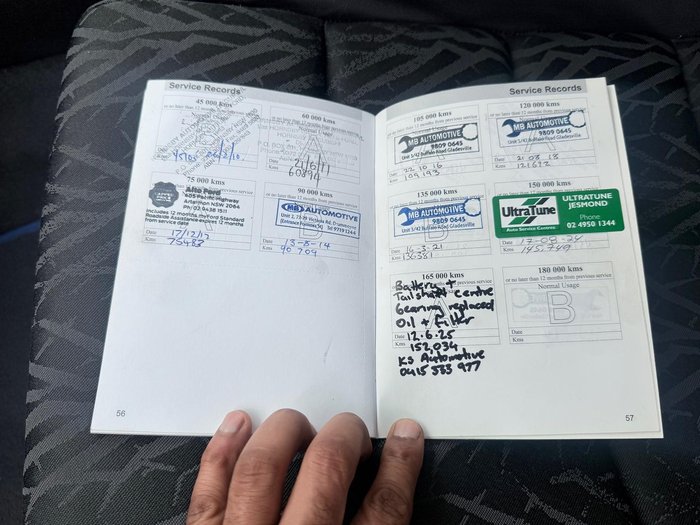 Service Records
45 000 kms
or no later than 12 months from previous service
Kms
60 000 kms
or no later than 12 months from previous service
Normal Usage
Date 21/6/11
Kms 60894
75 000 kms
Alto Ford
Artarmon NSW 2064
Includes 12 months myFord Standard
Roadside Assistance expires 12 months
from service date
Date 17/12/12
Kms 75483
90 000 kms
or no later than 12 months from previous service
MB AUTOMOTIVE
Date 13-8-14
Kms 90 709
56
Service Records
105 000 kms
or no later than 12 months from previous service
MB AUTOMOTIVE
9809 0645
Unit 5/42 Buffalo Road Gladesville
Date 22.10.16
Kms 109,193
120 000 kms
or no later than 12 months from previous service
MB AUTOMOTIVE
9809 0645
Unit 5/42 Buffalo Road Gladesville
Date 21.08.18
Kms 121672
135 000 kms
or no later than 12 months from previous service
MB AUTOMOTIVE
9809 0645
Unit 5/42 Buffalo Road Gladesville
Date 16-3-21
Kms 136381
150 000 kms
or no later than 12 months from previous service
ULTRATUNE
JESMOND
UltraTune
Auto Service Centres
Phone
02 4950 1344
Date 17-09-24
Kms 145,749
165 000 kms
or no later than 12 months from previous service
Battery +
Tailshaft centre
bearing replaced
Oil + Filter
Date 12.6.25
Kms 152,034
KS Automotive
0415 533 977
180 000 kms
or no later than 12 months from previous service
Normal Usage
B
Date
Kms
57